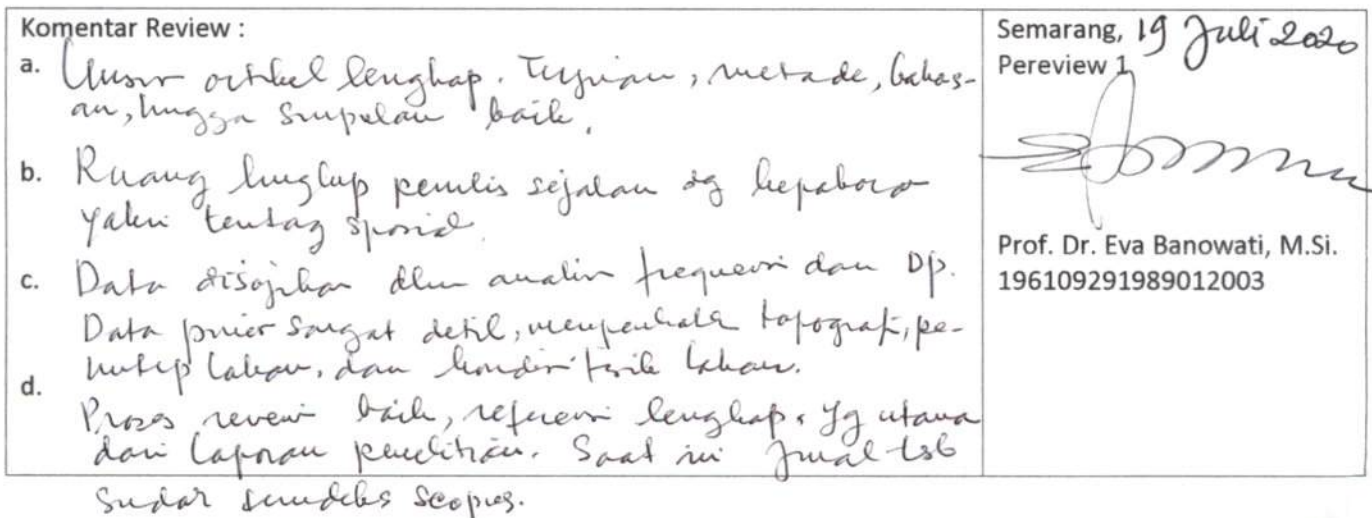 Komentar Review :
a. Unsur artikel lengkap. Tujuan, metode, bahas-
an, hingga simpulan baik.
b. Ruang lingkup penulis sejalan dg
yakni tentang spasial.
c. Data disajikan dlm analisis frequensi dan DP.
Data primer sangat detil, memperhatikan topografi, pe-
nutup lahan, dan kondisi fisik lahan.
d. Proses review baik, referensi lengkap. Yg utama
dari laporan penelitian. Saat ini jurnal tsb
sudah terindeks scopus.
Semarang, 19 Juli 2020
Pereview 1
Prof. Dr. Eva Banowati, M.Si.
196109291989012003